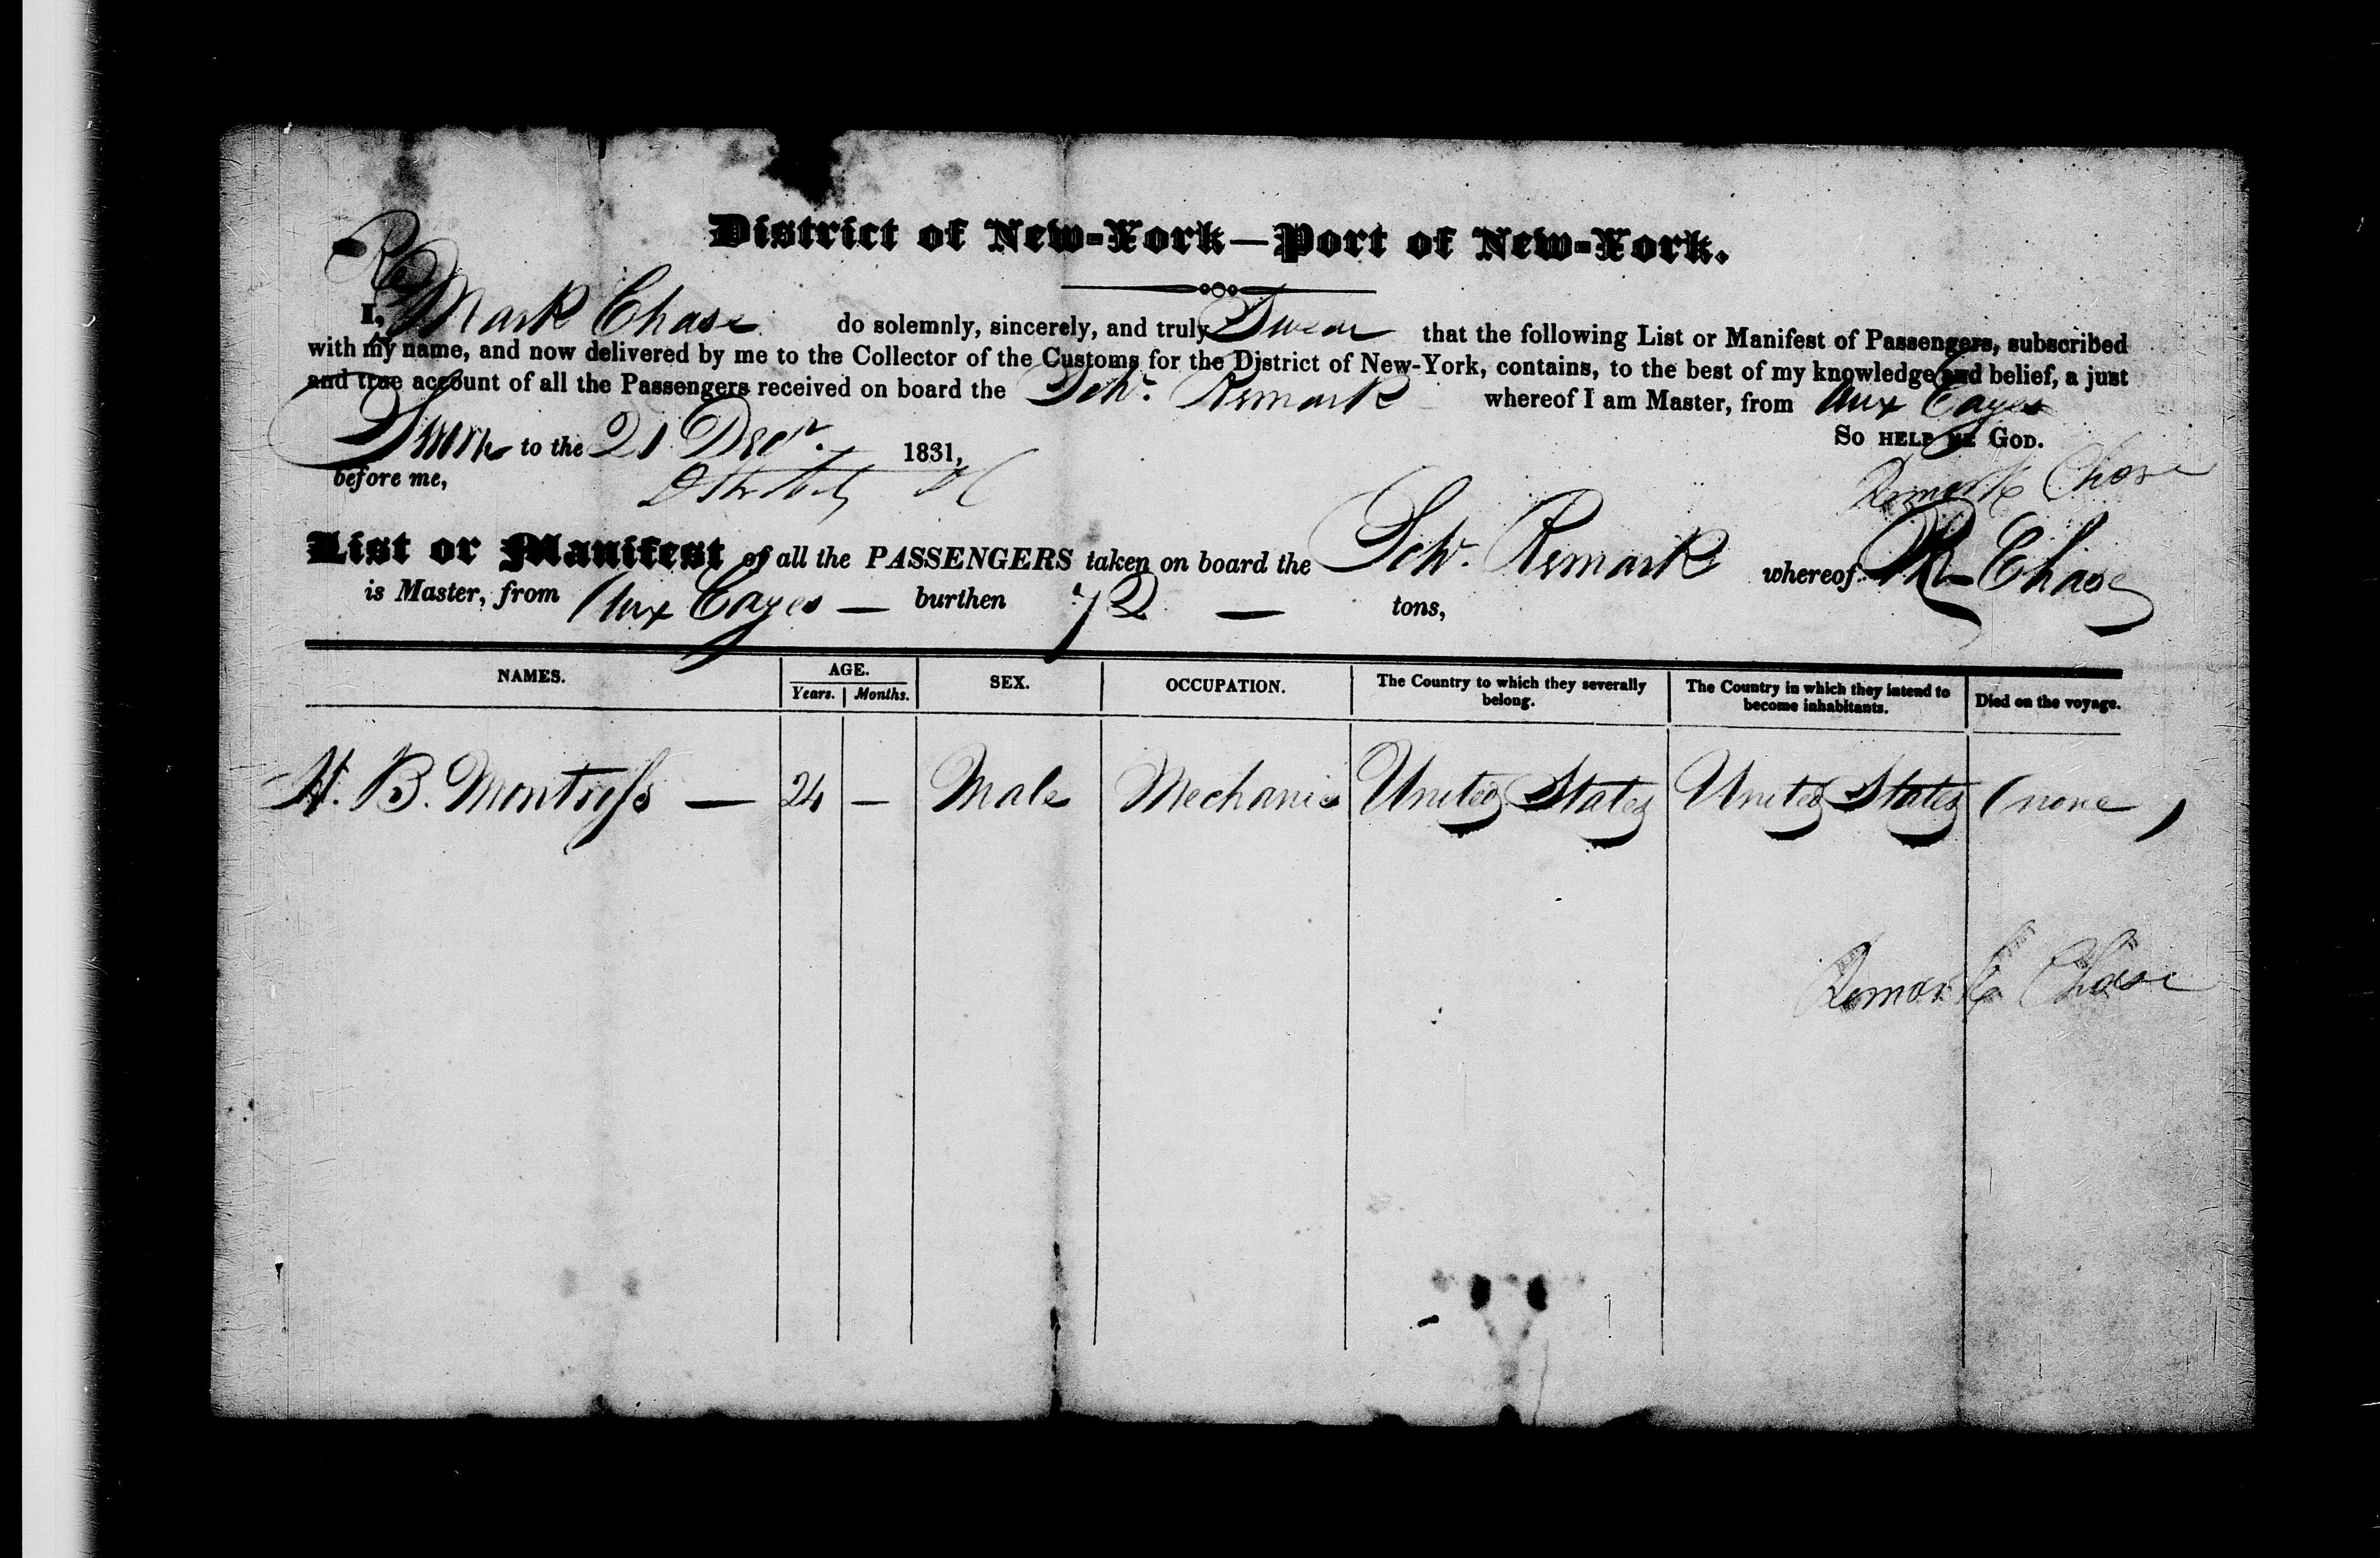 District of New-York—Port of New-York.
I, Remark Chase do solemnly, sincerely, and truly Swear that the following List or Manifest of Passengers, subscribed
with my name, and now delivered by me to the Collector of the Customs for the District of New-York, contains, to the best of my knowledge and belief, a just
and true account of all the Passengers received on board the Schr. Remark whereof I am Master, from Aux Cayes
So HELP ME GOD.
Sworn to the 21 Decr. 1831,
before me,
Remark Chase
List or Manifest of all the PASSENGERS taken on board the Schr. Remark whereof R Chase
is Master, from Aux Cayes — burthen 72 — tons,
NAMES. AGE. SEX. OCCUPATION. The Country to which they severally belong. The Country in which they intend to become inhabitants. Died on the voyage.
Years. Months.
H. B. Montress — 24 — Male Mechanic United States United States (none)
Remark Chase